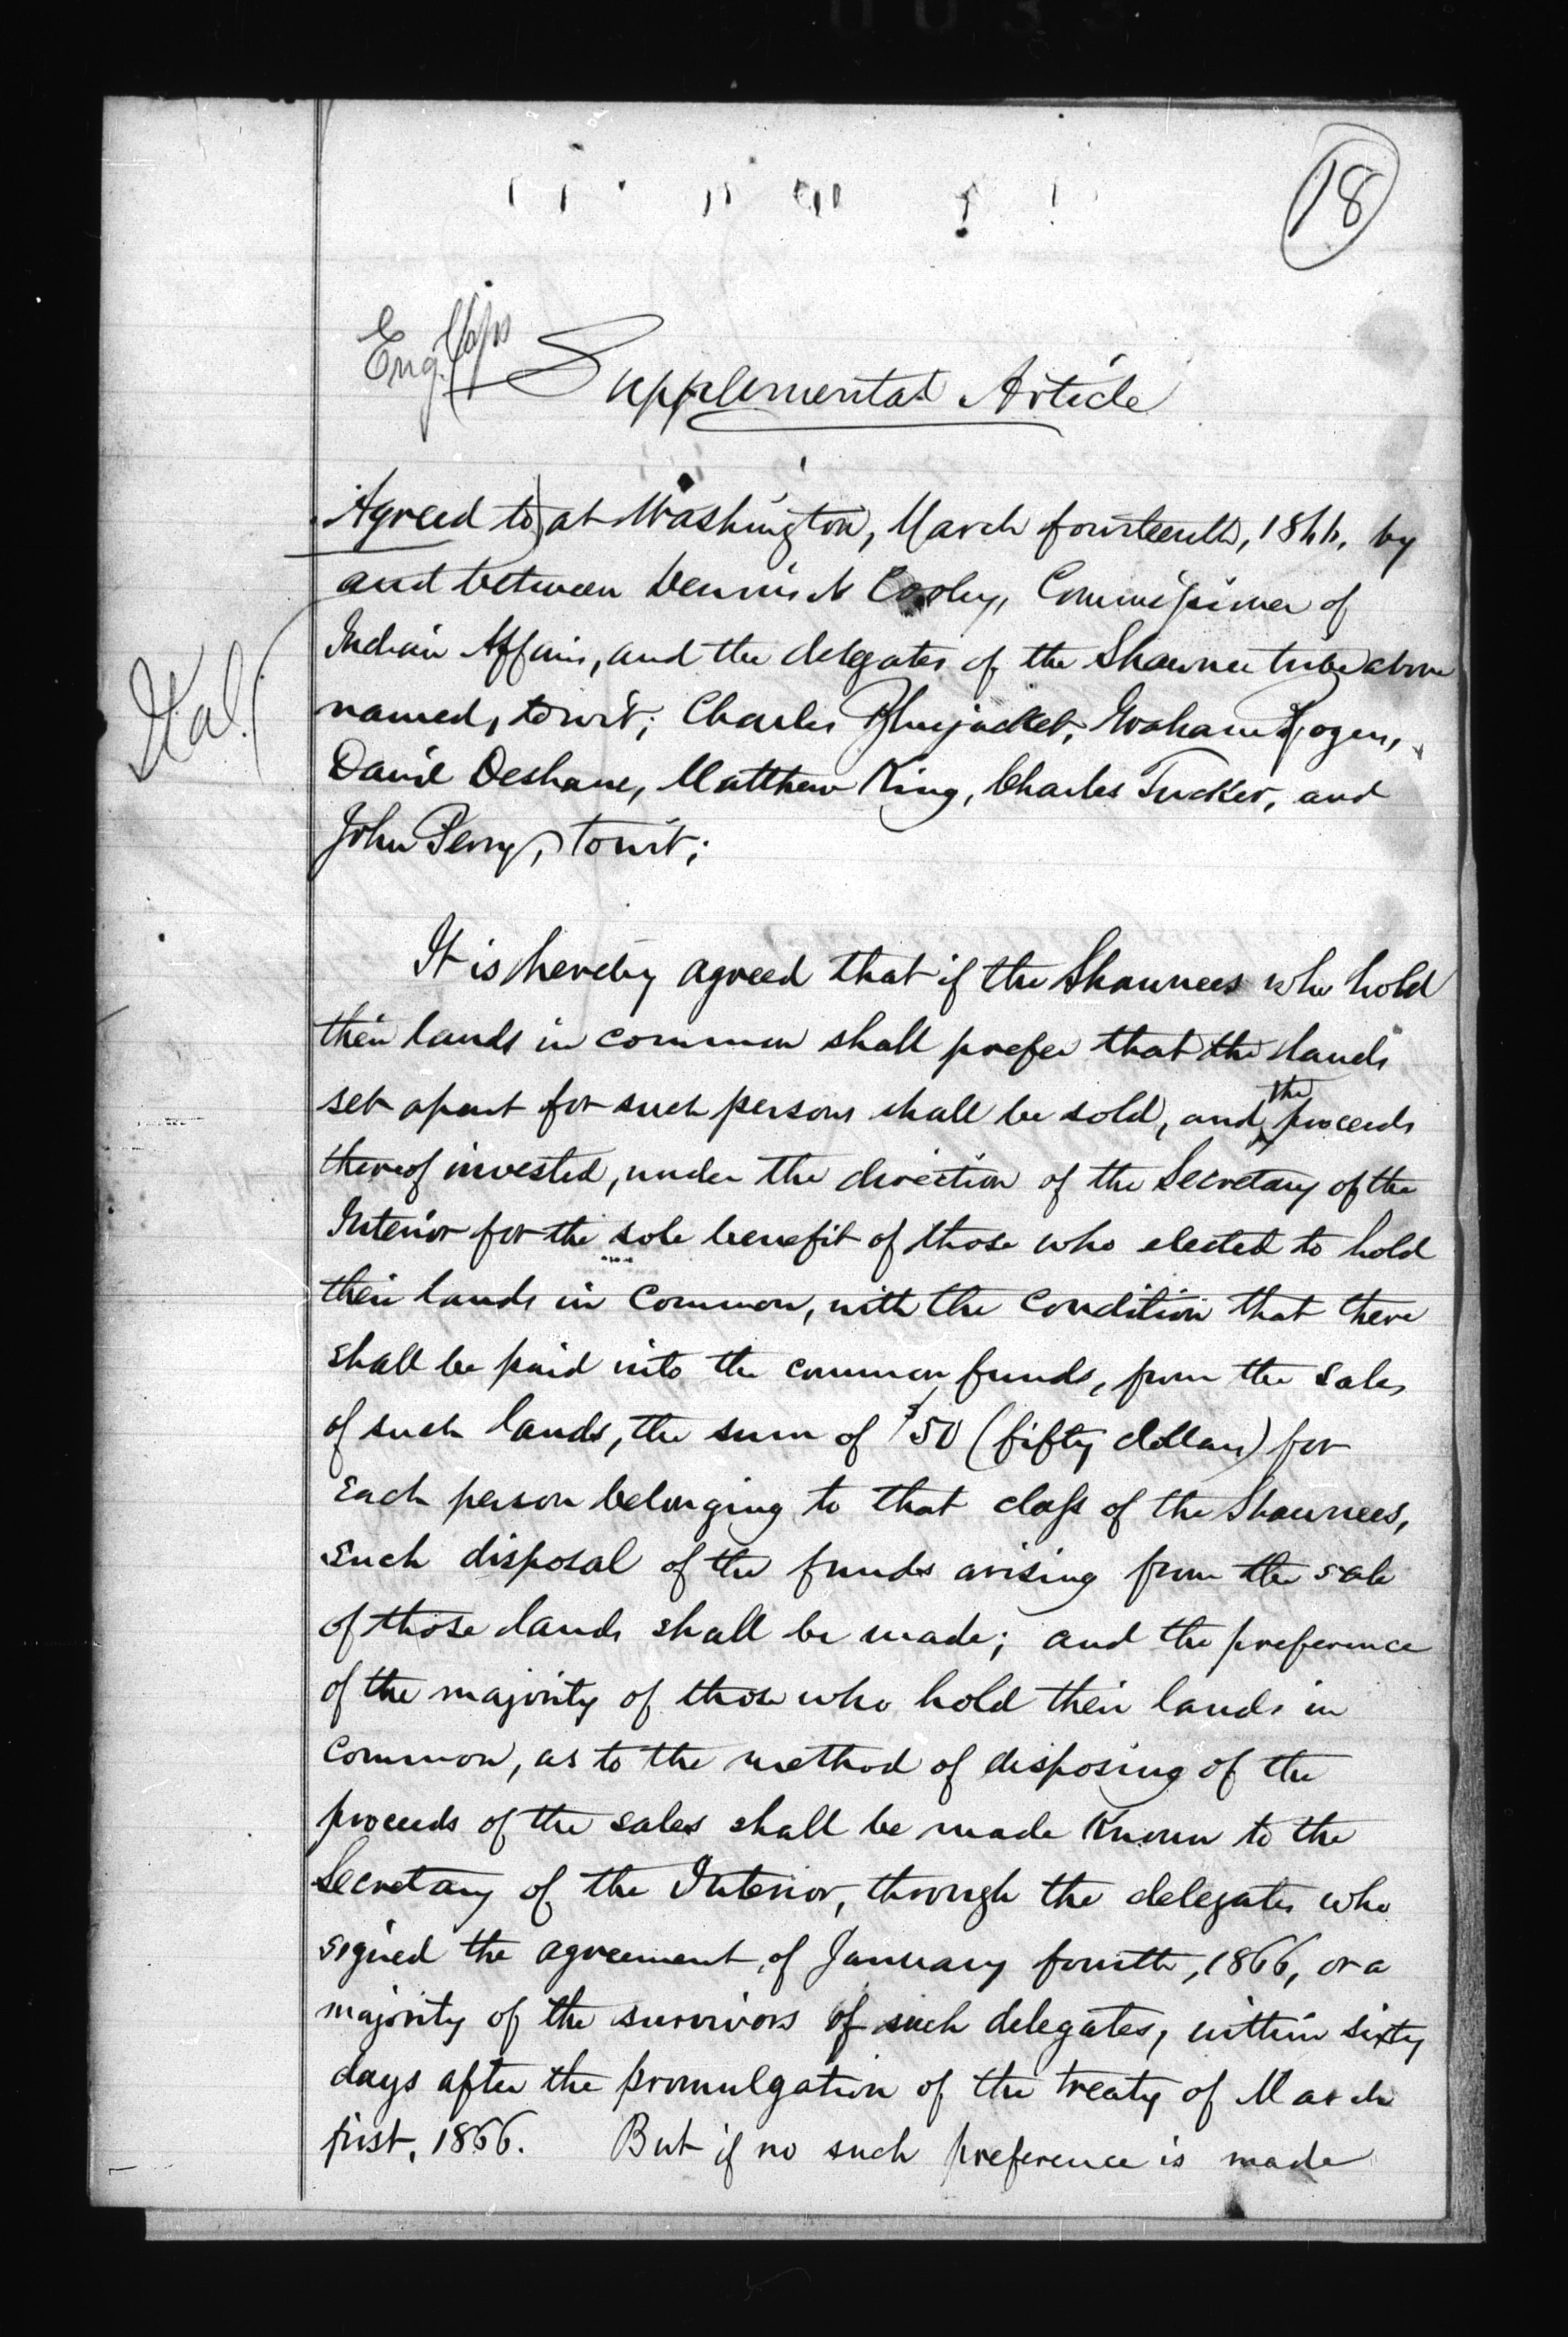 18
Eng. Caps
Supplemental Article
Agreed to at Washington, March fourteenth, 1866, by
and between Dennis N Cooley, Commissioner of
Indian Affairs, and the delegates of the Shawnee tribe above
named, towit; Charles Bluejacket, Graham Rogers,
David Deshane, Matthew King, Charles Tucker, and
John Perry, towit;
Ital.
It is hereby agreed that if the Shawnees who hold
their lands in common shall prefer that the lands
set apart for such persons shall be sold, and the proceeds
thereof invested, under the direction of the Secretary of the
Interior for the sole benefit of those who elected to hold
their lands in common, with the condition that there
shall be paid into the common funds, from the sales
of such lands, the sum of $50 (fifty dollars) for
each person belonging to that class of the Shawnees,
such disposal of the funds arising from the sale
of those lands shall be made; and the preference
of the majority of those who hold their lands in
common, as to the method of disposing of the
proceeds of the sales shall be made known to the
Secretary of the Interior, through the delegates who
signed the agreement of January fourth, 1866, or a
majority of the survivors of such delegates, within sixty
days after the promulgation of the treaty of March
first, 1866. But if no such preference is made